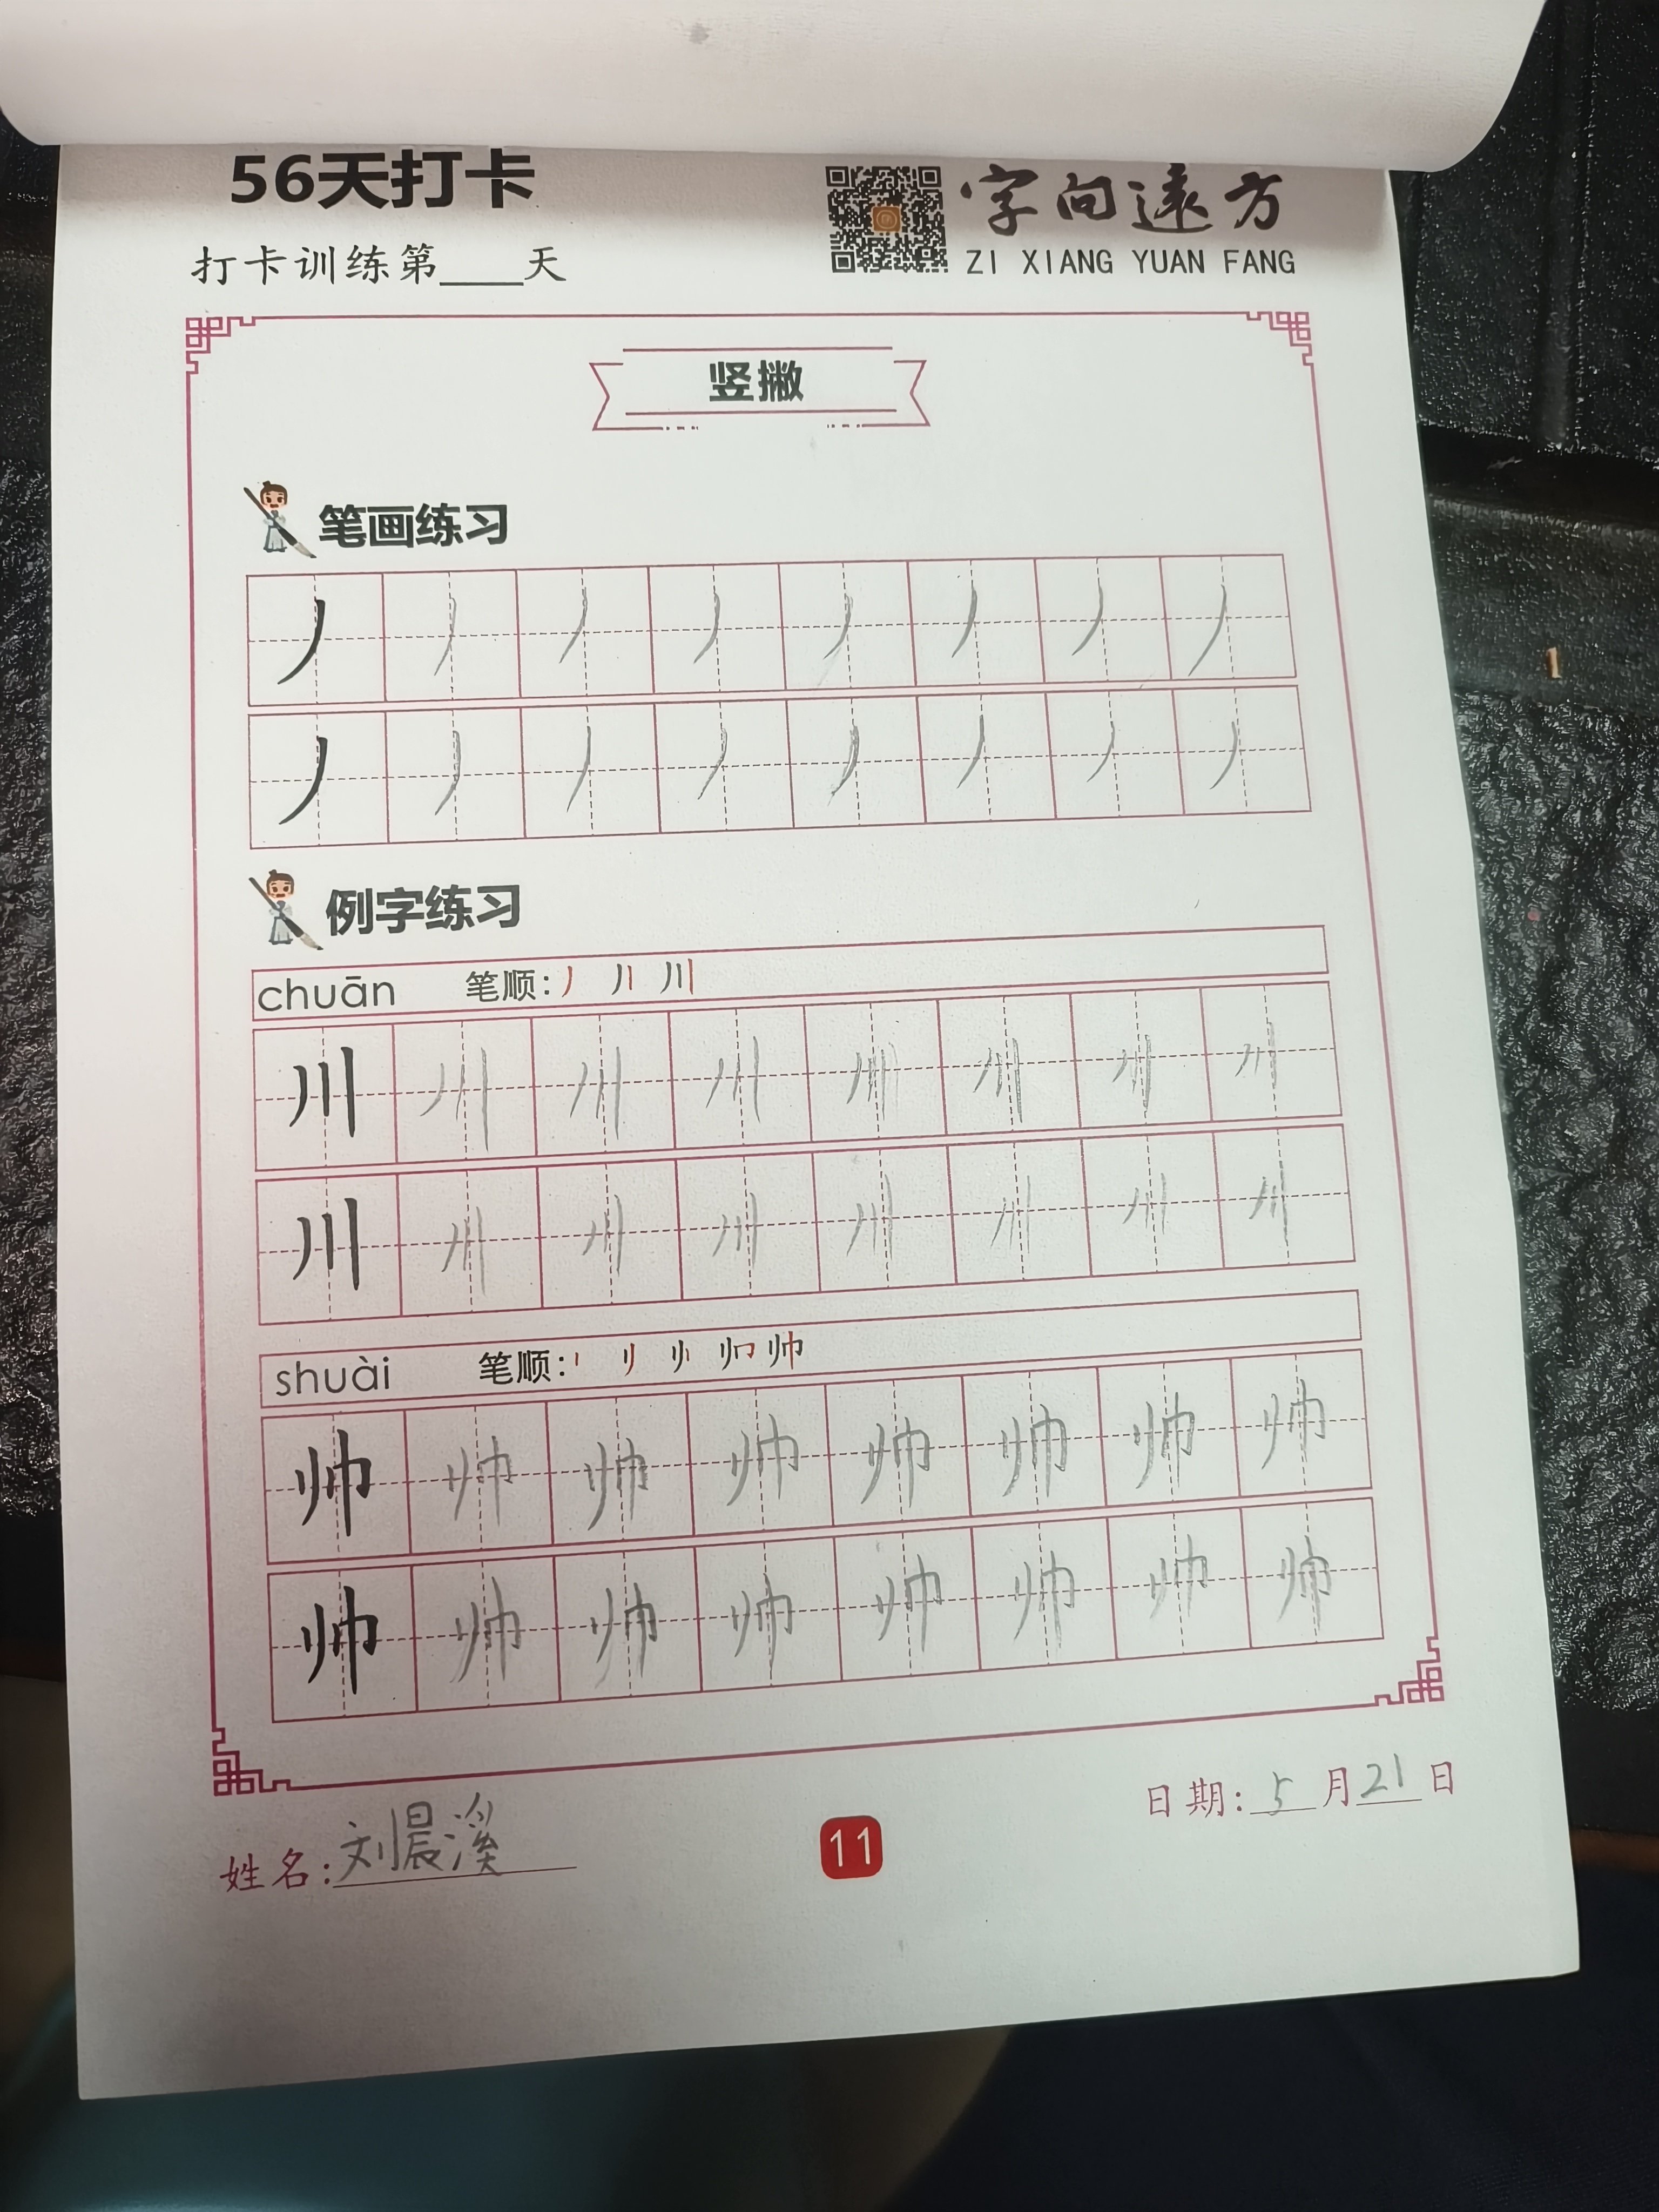 56天打卡
字向遠方
打卡训练第____天
ZI XIANG YUAN FANG
竖撇
笔画练习
丿 丿 丿 丿 丿 丿 丿 丿
丿 丿 丿 丿 丿 丿 丿 丿
例字练习
chuān 笔顺: 丿 丿丨 川
川 川 川 川 川 川 川 川
川 川 川 川 川 川 川 川
shuài 笔顺: 帅
帅 帅 帅 帅 帅 帅 帅 帅
帅 帅 帅 帅 帅 帅 帅 帅
日期: 5 月 21 日
姓名: 刘晨溪
11